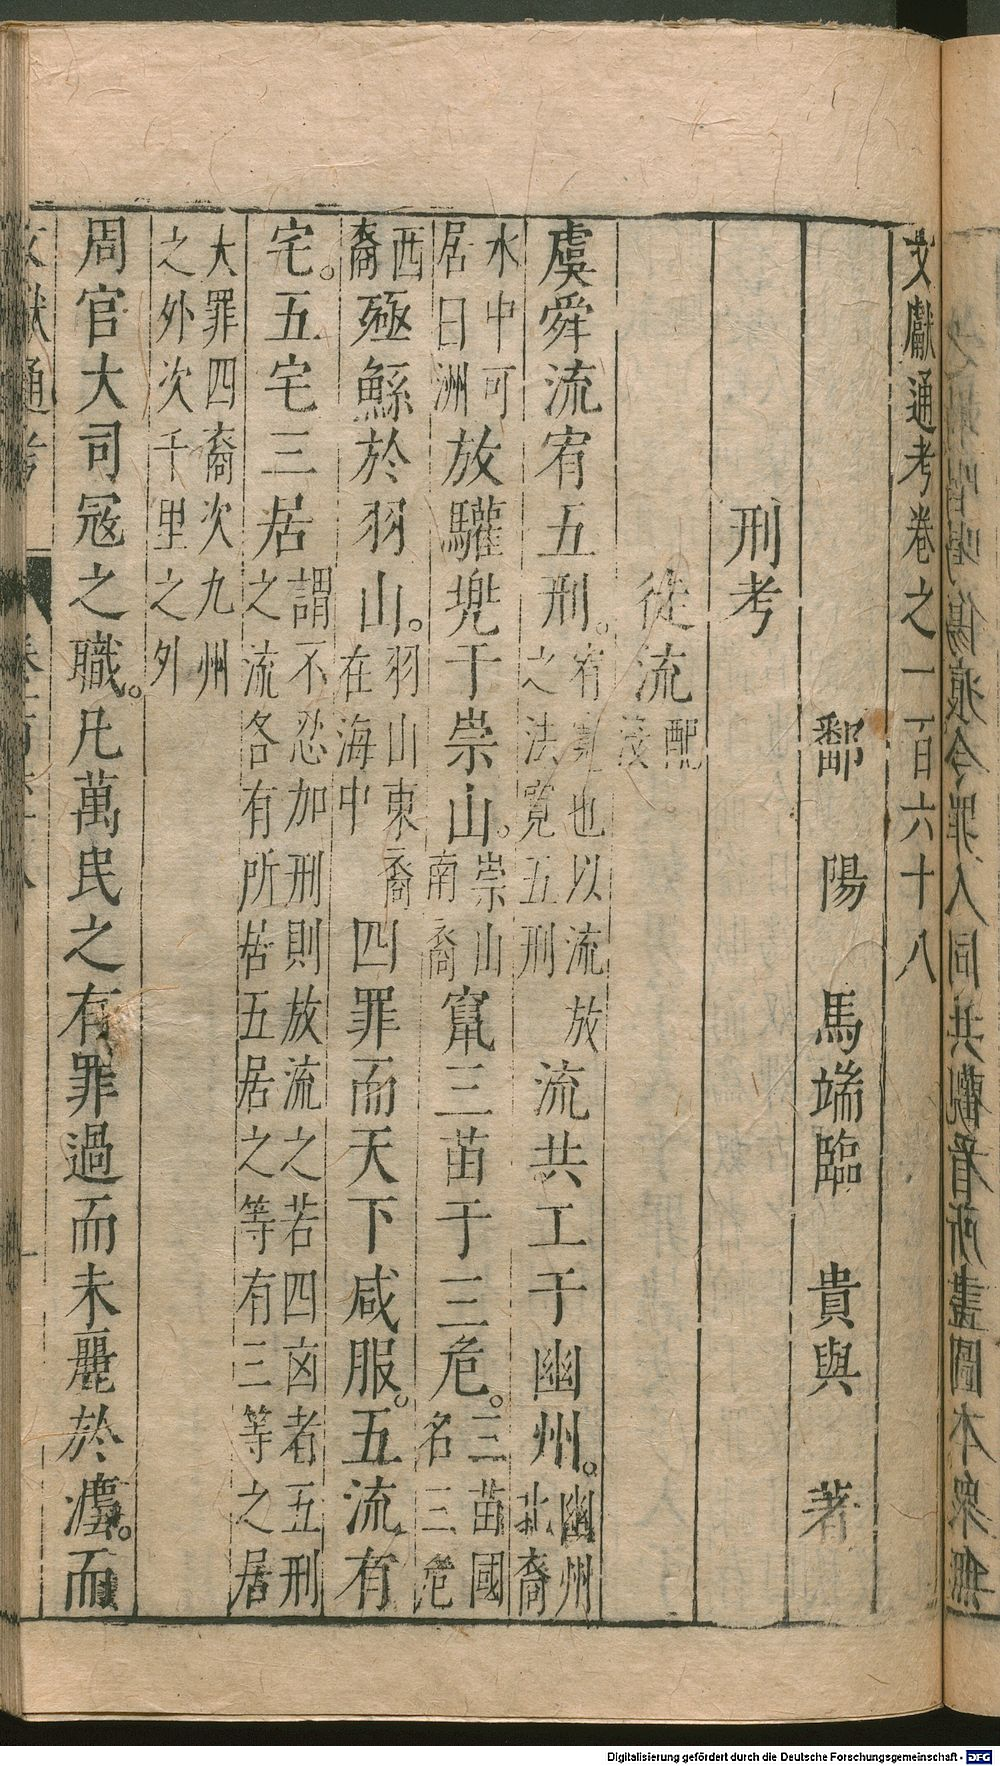 傷痕令罪人同共觀看所畫圖本衆無
文獻通考卷之一百六十八
鄱陽馬端臨貴與著
刑考
徒流配沒
虞舜流宥五刑。宥寛也以流放之法寛五刑流共工于幽州。幽州北裔
水中可居曰洲放驩兠于崇山。崇山南裔竄三苗于三危。三苗國名三危
西裔殛鯀於羽山。羽山東裔在海中四罪而天下咸服。五流有
宅。五宅三居謂不忍加刑則放流之若四凶者五刑之流各有所居五居之等有三等之居
大罪四裔次九州之外次千里之外
周官大司冦之職。凡萬民之有罪過而未麗於灋。而
文獻通考
Digitalisierung gefördert durch die Deutsche Forschungsgemeinschaft - DFG